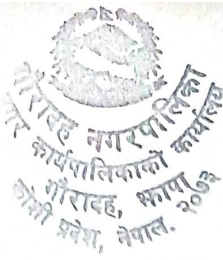 गौरादह नगरपालिका
नगर कार्यपालिकाको कार्यालय
गौरादह, झापा
कोशी प्रदेश, नेपाल. २०७३